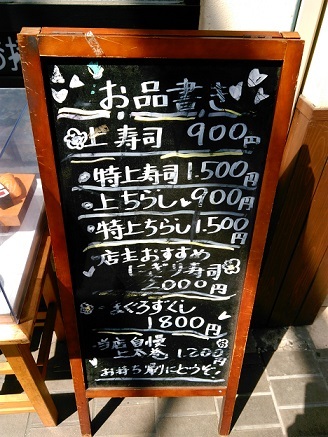 お品書き
上寿司 900円
特上寿司 1.500円
上ちらし 900円
特上ちらし 1.500円
店主おすすめ
にぎり寿司
2000円
まぐろずくし
1800円
当店自慢
上太巻 1.200円
お持ち帰りにどうぞ。